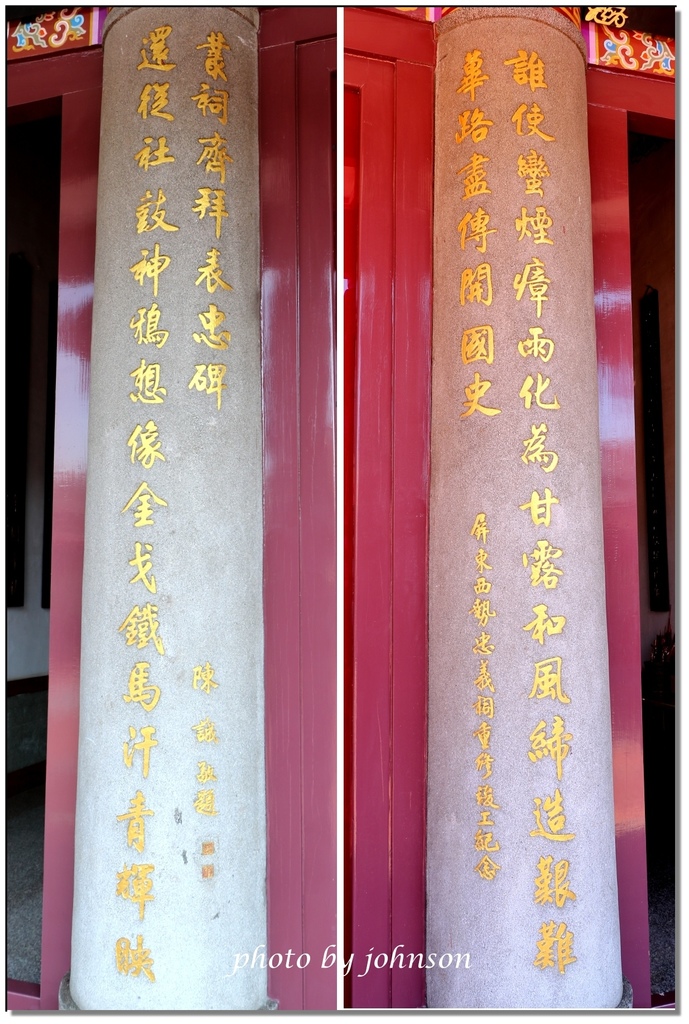 誰使蠻煙瘴雨化為甘露和風締造艱難
蓽路盡傳開國史
屏東西勢忠義祠重修竣工紀念
還從社鼓神鴉想像金戈鐵馬汗青輝映
叢祠齊拜表忠碑
陳誠敬題
photo by johnson